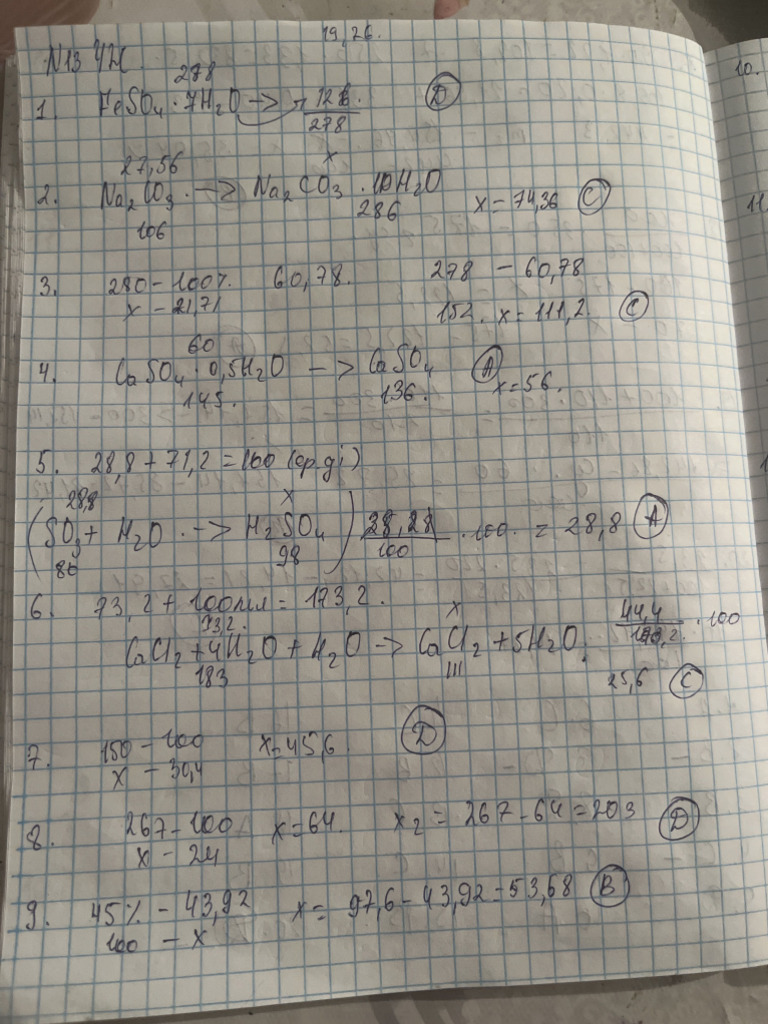 19, 26.
N13 ЧН.
278
1. FeSO4 · 7H2O -> 126. D
278
27,56 x
2. Na2CO3 · -> Na2CO3 · 10H2O x = 74,36 C
106 286
3. 280 - 100%. 60,78. 278 - 60,78
x - 21,71 152. x = 111,2. C
60
4. CaSO4 · 0,5H2O -> CaSO4 A x = 56.
145. 136.
5. 28,8 + 71,2 = 100 (ср.ді)
28,8 x
(SO3 + H2O · -> H2SO4) 28,28 · 100. = 28,8 A
80 98 100
6. 73,2 + 100мл = 173,2.
73,2. x 44,4 · 100
CaCl2 + 4H2O + H2O -> CaCl2 + 5H2O.
183 111 25,6 C
7. 150 - 100 x = 45,6 D
x - 30,4
8. 267 - 100 x = 64. x2 = 267 - 64 = 203 D
x - 24
9. 45% - 43,92 x = 97,6 - 43,92 = 53,68 B
100 - x
10.
11.